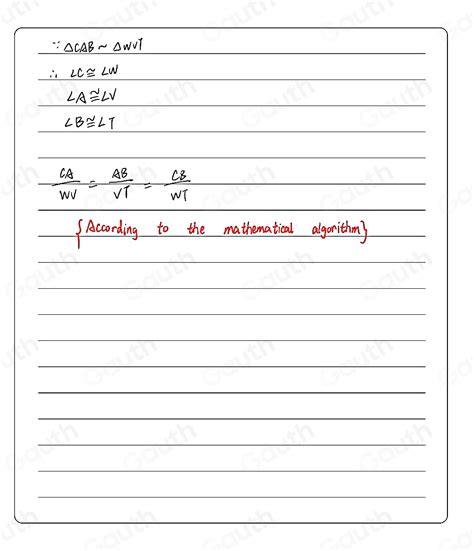 ∵ △CAB ~ △WVT
∴ ∠C ≅ ∠W
∠A ≅ ∠V
∠B ≅ ∠T
CA/WV = AB/VT = CB/WT
{According to the mathematical algorithm}
Gauth